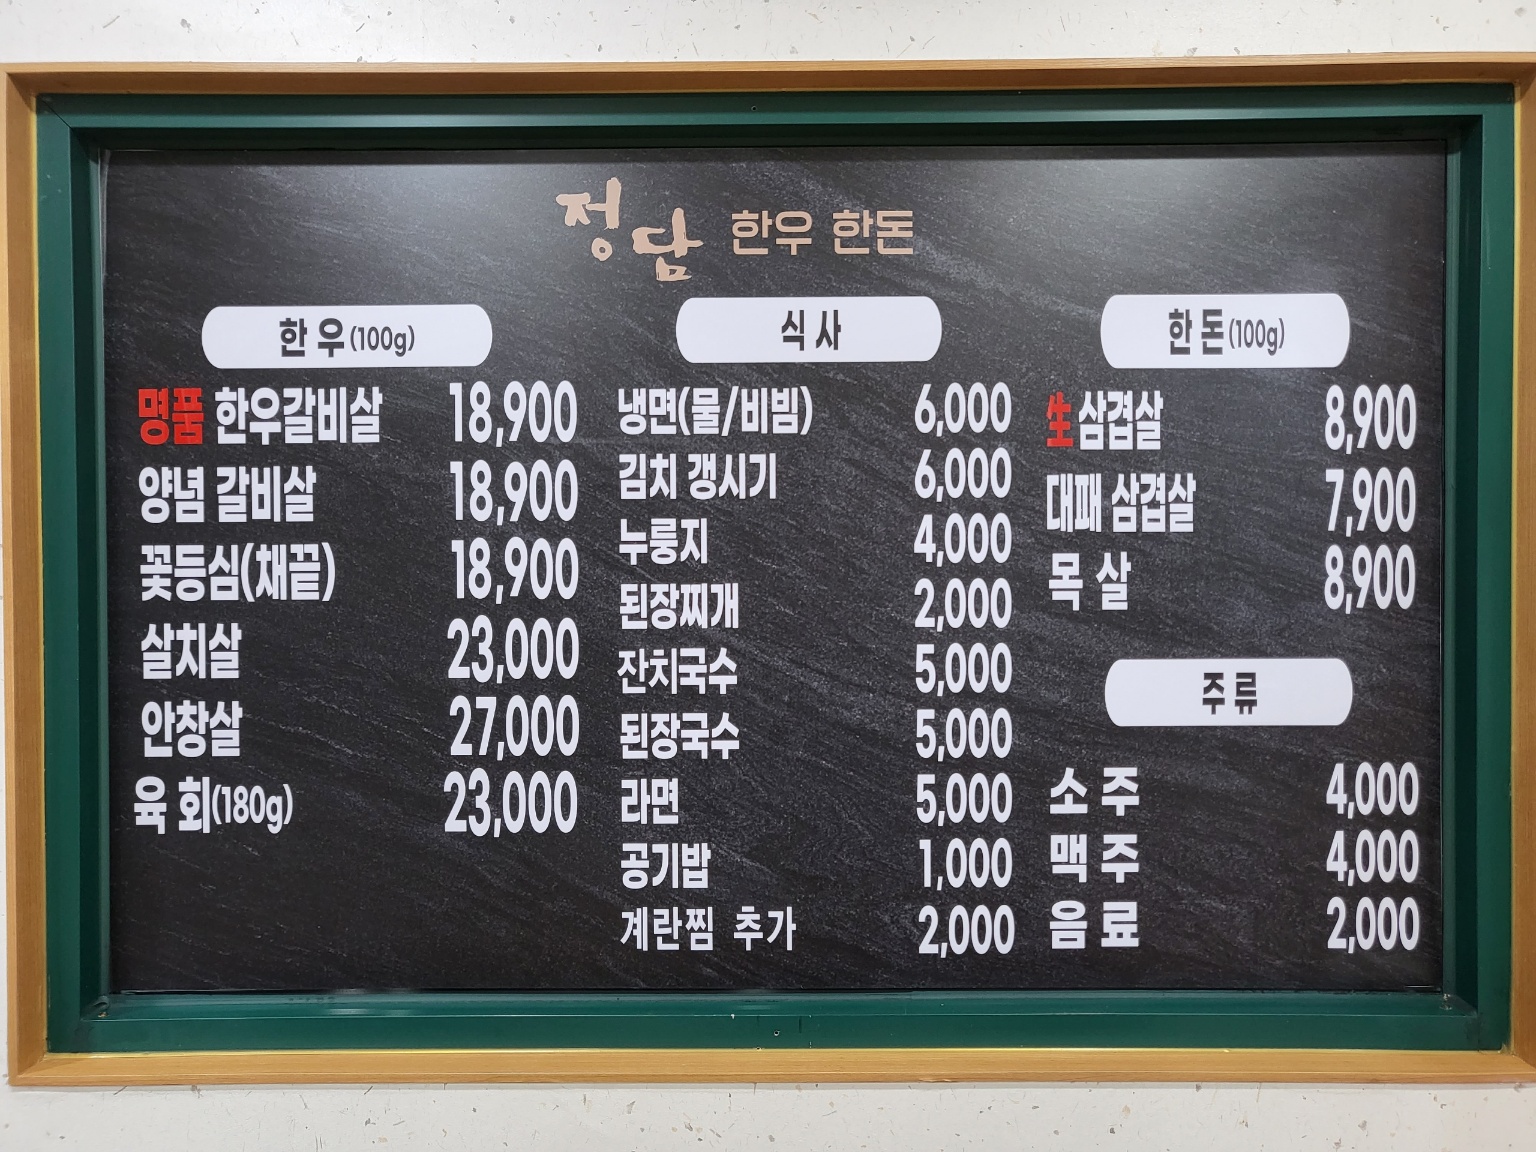 정담 한우 한돈
한우(100g)
명품 한우갈비살 18,900
양념 갈비살 18,900
꽃등심(채끝) 18,900
살치살 23,000
안창살 27,000
육회(180g) 23,000
식사
냉면(물/비빔) 6,000
김치 갱시기 6,000
누룽지 4,000
된장찌개 2,000
잔치국수 5,000
된장국수 5,000
라면 5,000
공기밥 1,000
계란찜 추가 2,000
한돈(100g)
生삼겹살 8,900
대패 삼겹살 7,900
목살 8,900
주류
소주 4,000
맥주 4,000
음료 2,000